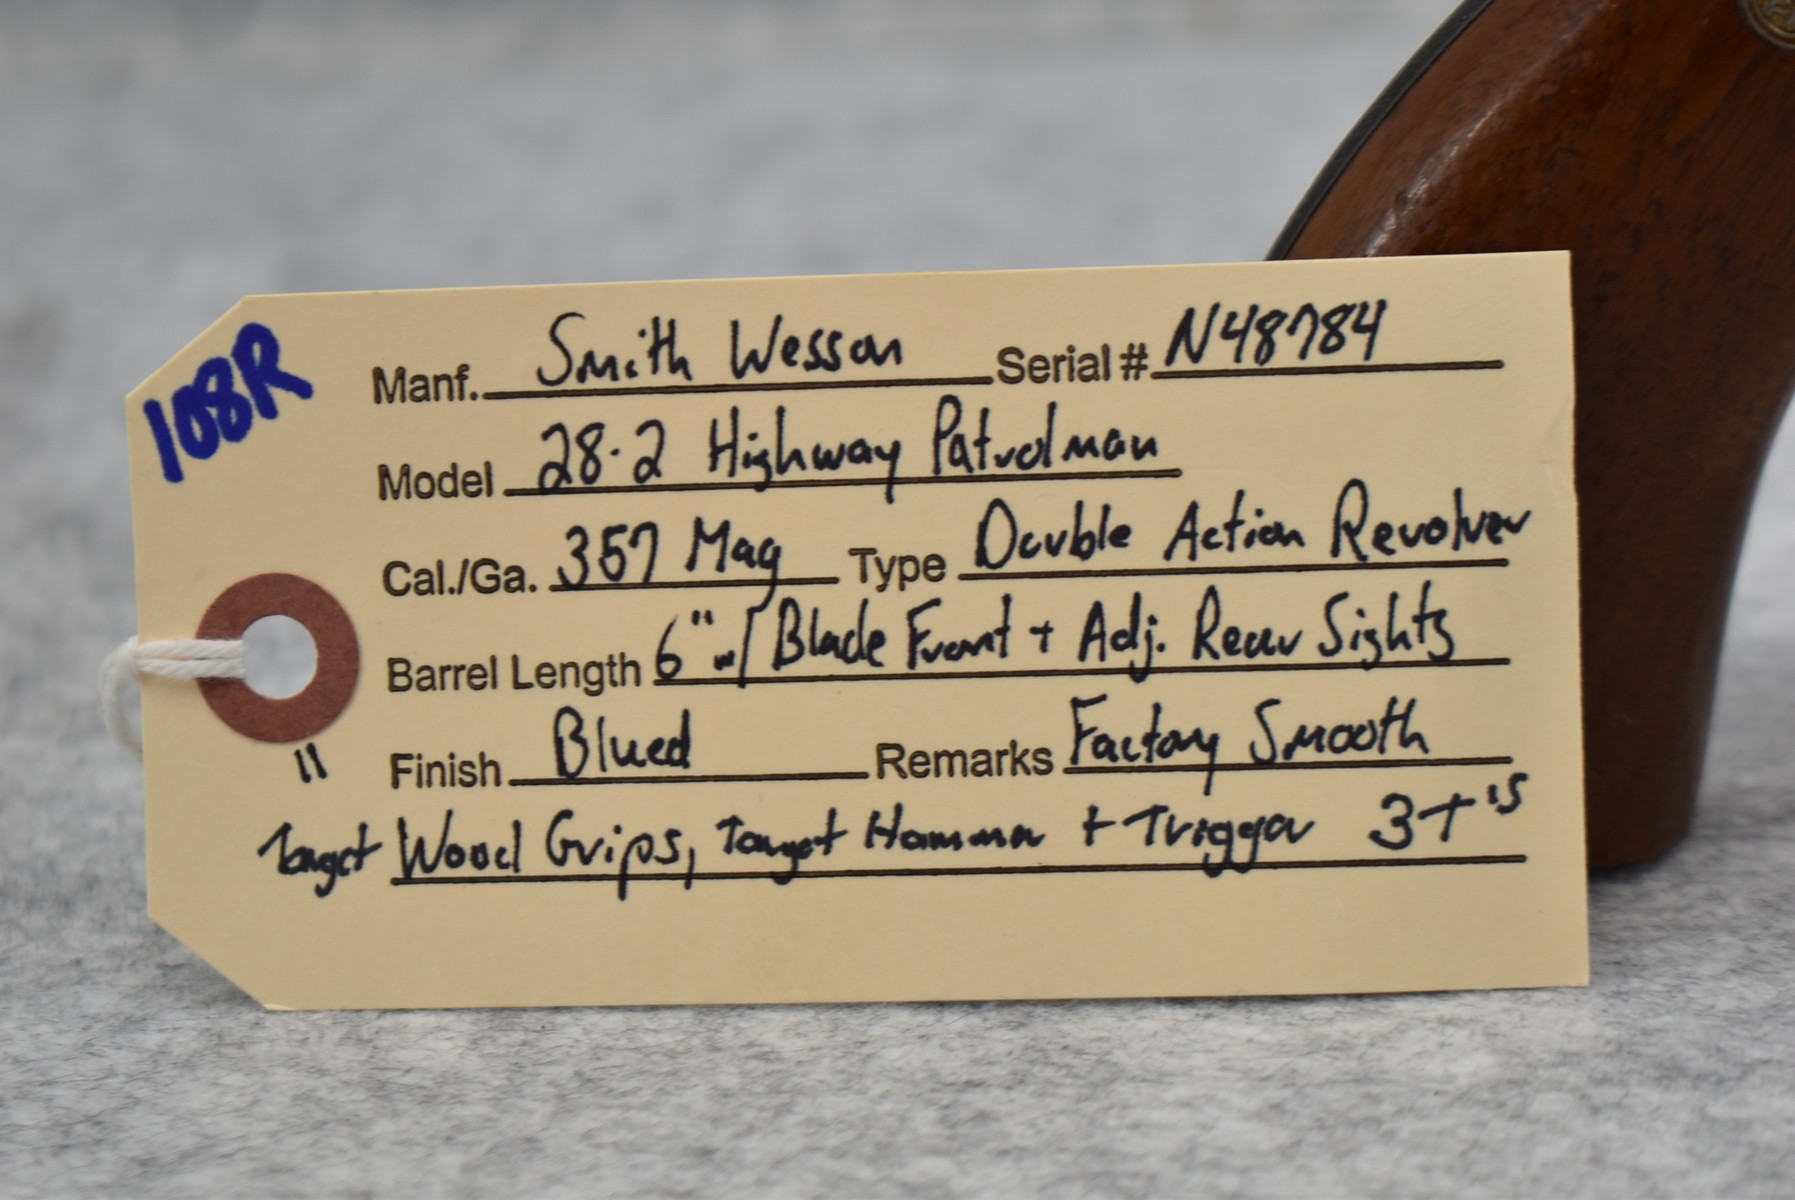 108R
Manf. Smith Wesson Serial # N48784
Model 28-2 Highway Patrolman
Cal./Ga. 357 Mag Type Double Action Revolver
Barrel Length 6" w/ Blade Front + Adj. Rear Sights
" Finish Blued Remarks Factory Smooth
Target Wood Grips, Target Hammer + Trigger 3T's